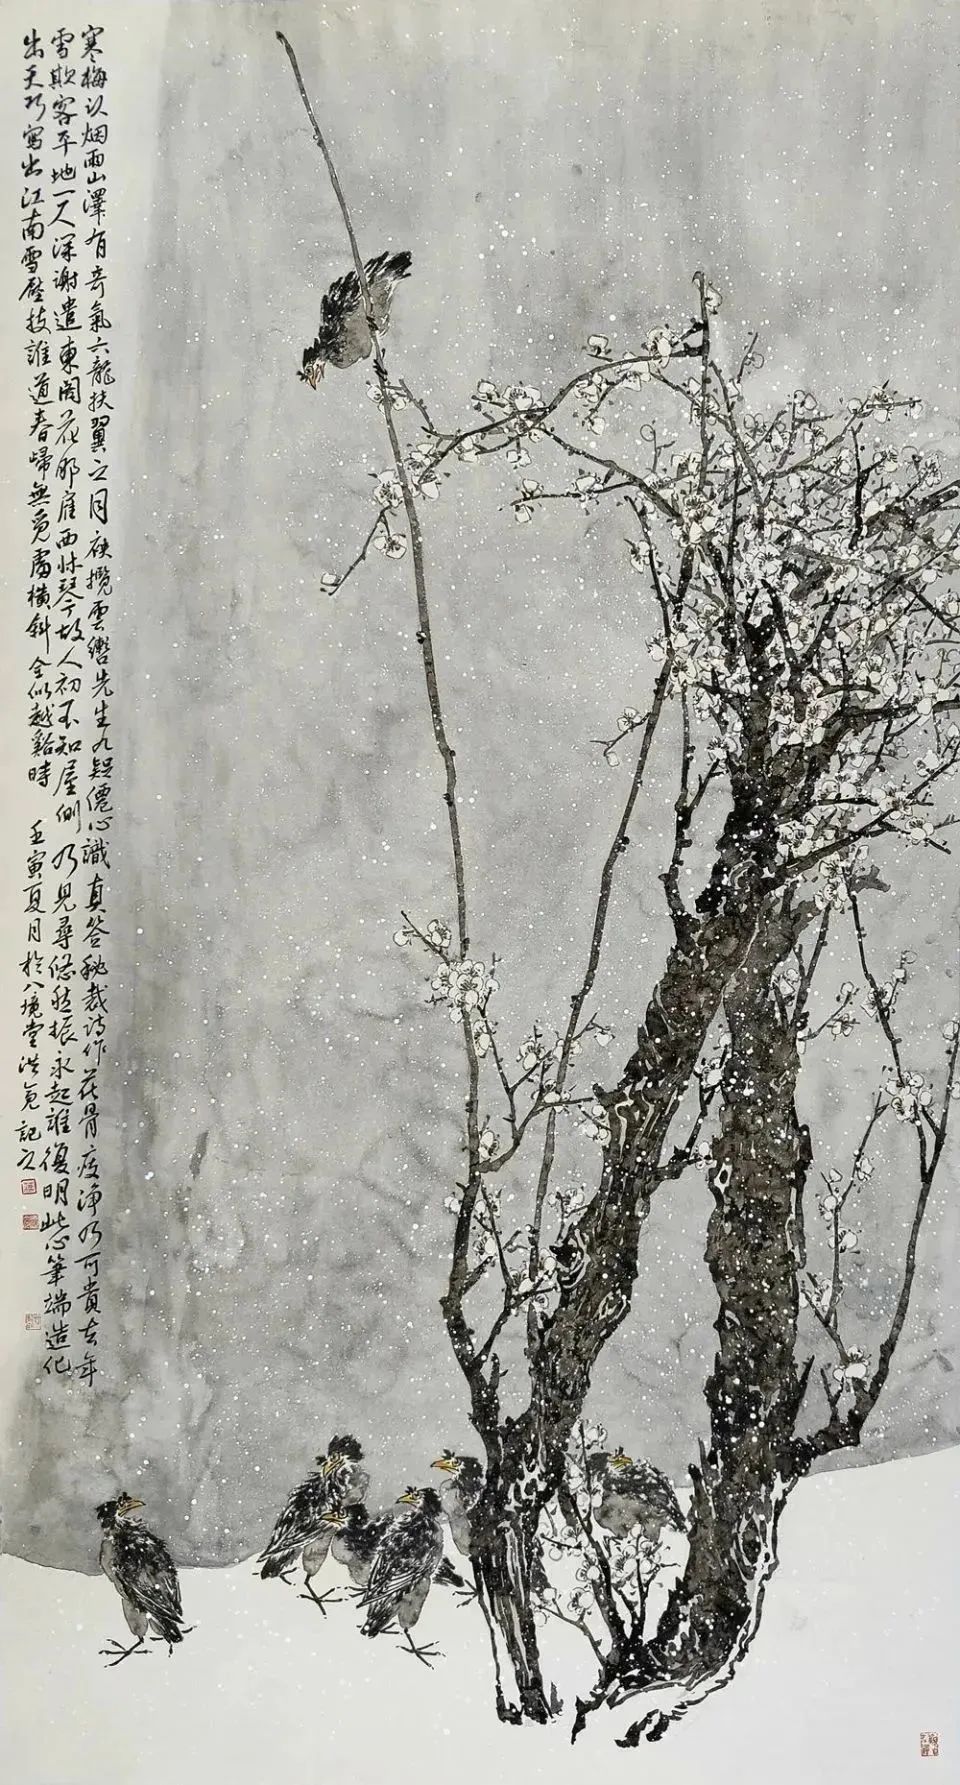 寒梅以烟雨山澤有奇氣六龍扶翼之月夜攬雲轡先生九疑僊心識真答秘裁詩作花骨瘦净乃可貴去年
雪欺客平地一尺深謝遣東閣花那雇西牀琴故人初不知屋側乃見尋悠然振永起誰復明此心筆端造化
出天巧寫出江南雪壓枝誰道春歸無覓處橫斜全似越谿時 壬寅夏月於八境堂洪 記之